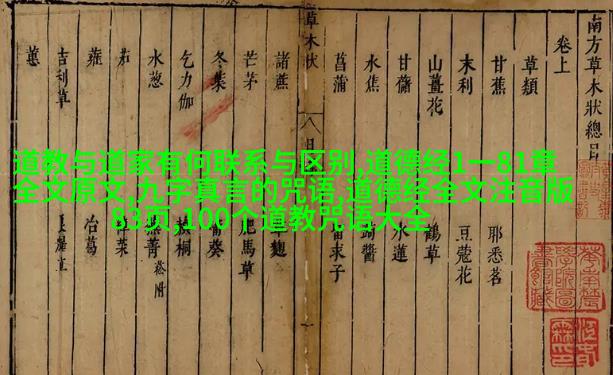 道教与道家有何联系与区别,道德经1一81章
全文原文,九字真言的咒语,道德经全文注音版
83页,100个道教咒语大全
南方草木狀總目
卷上
草類
甘蕉 耶悉茗
末利 豆蔻花
山薑花 鶴草
甘藷 水蓮
水蕉 醬
菖蒲 求子
草木狀 八目 一
諸蔗 麴
芒茅 肥馬草
冬葉 葵
乞力伽 桐
水葱 菁 菘附
茄 菜
蕹 冶葛
吉利草
蕙